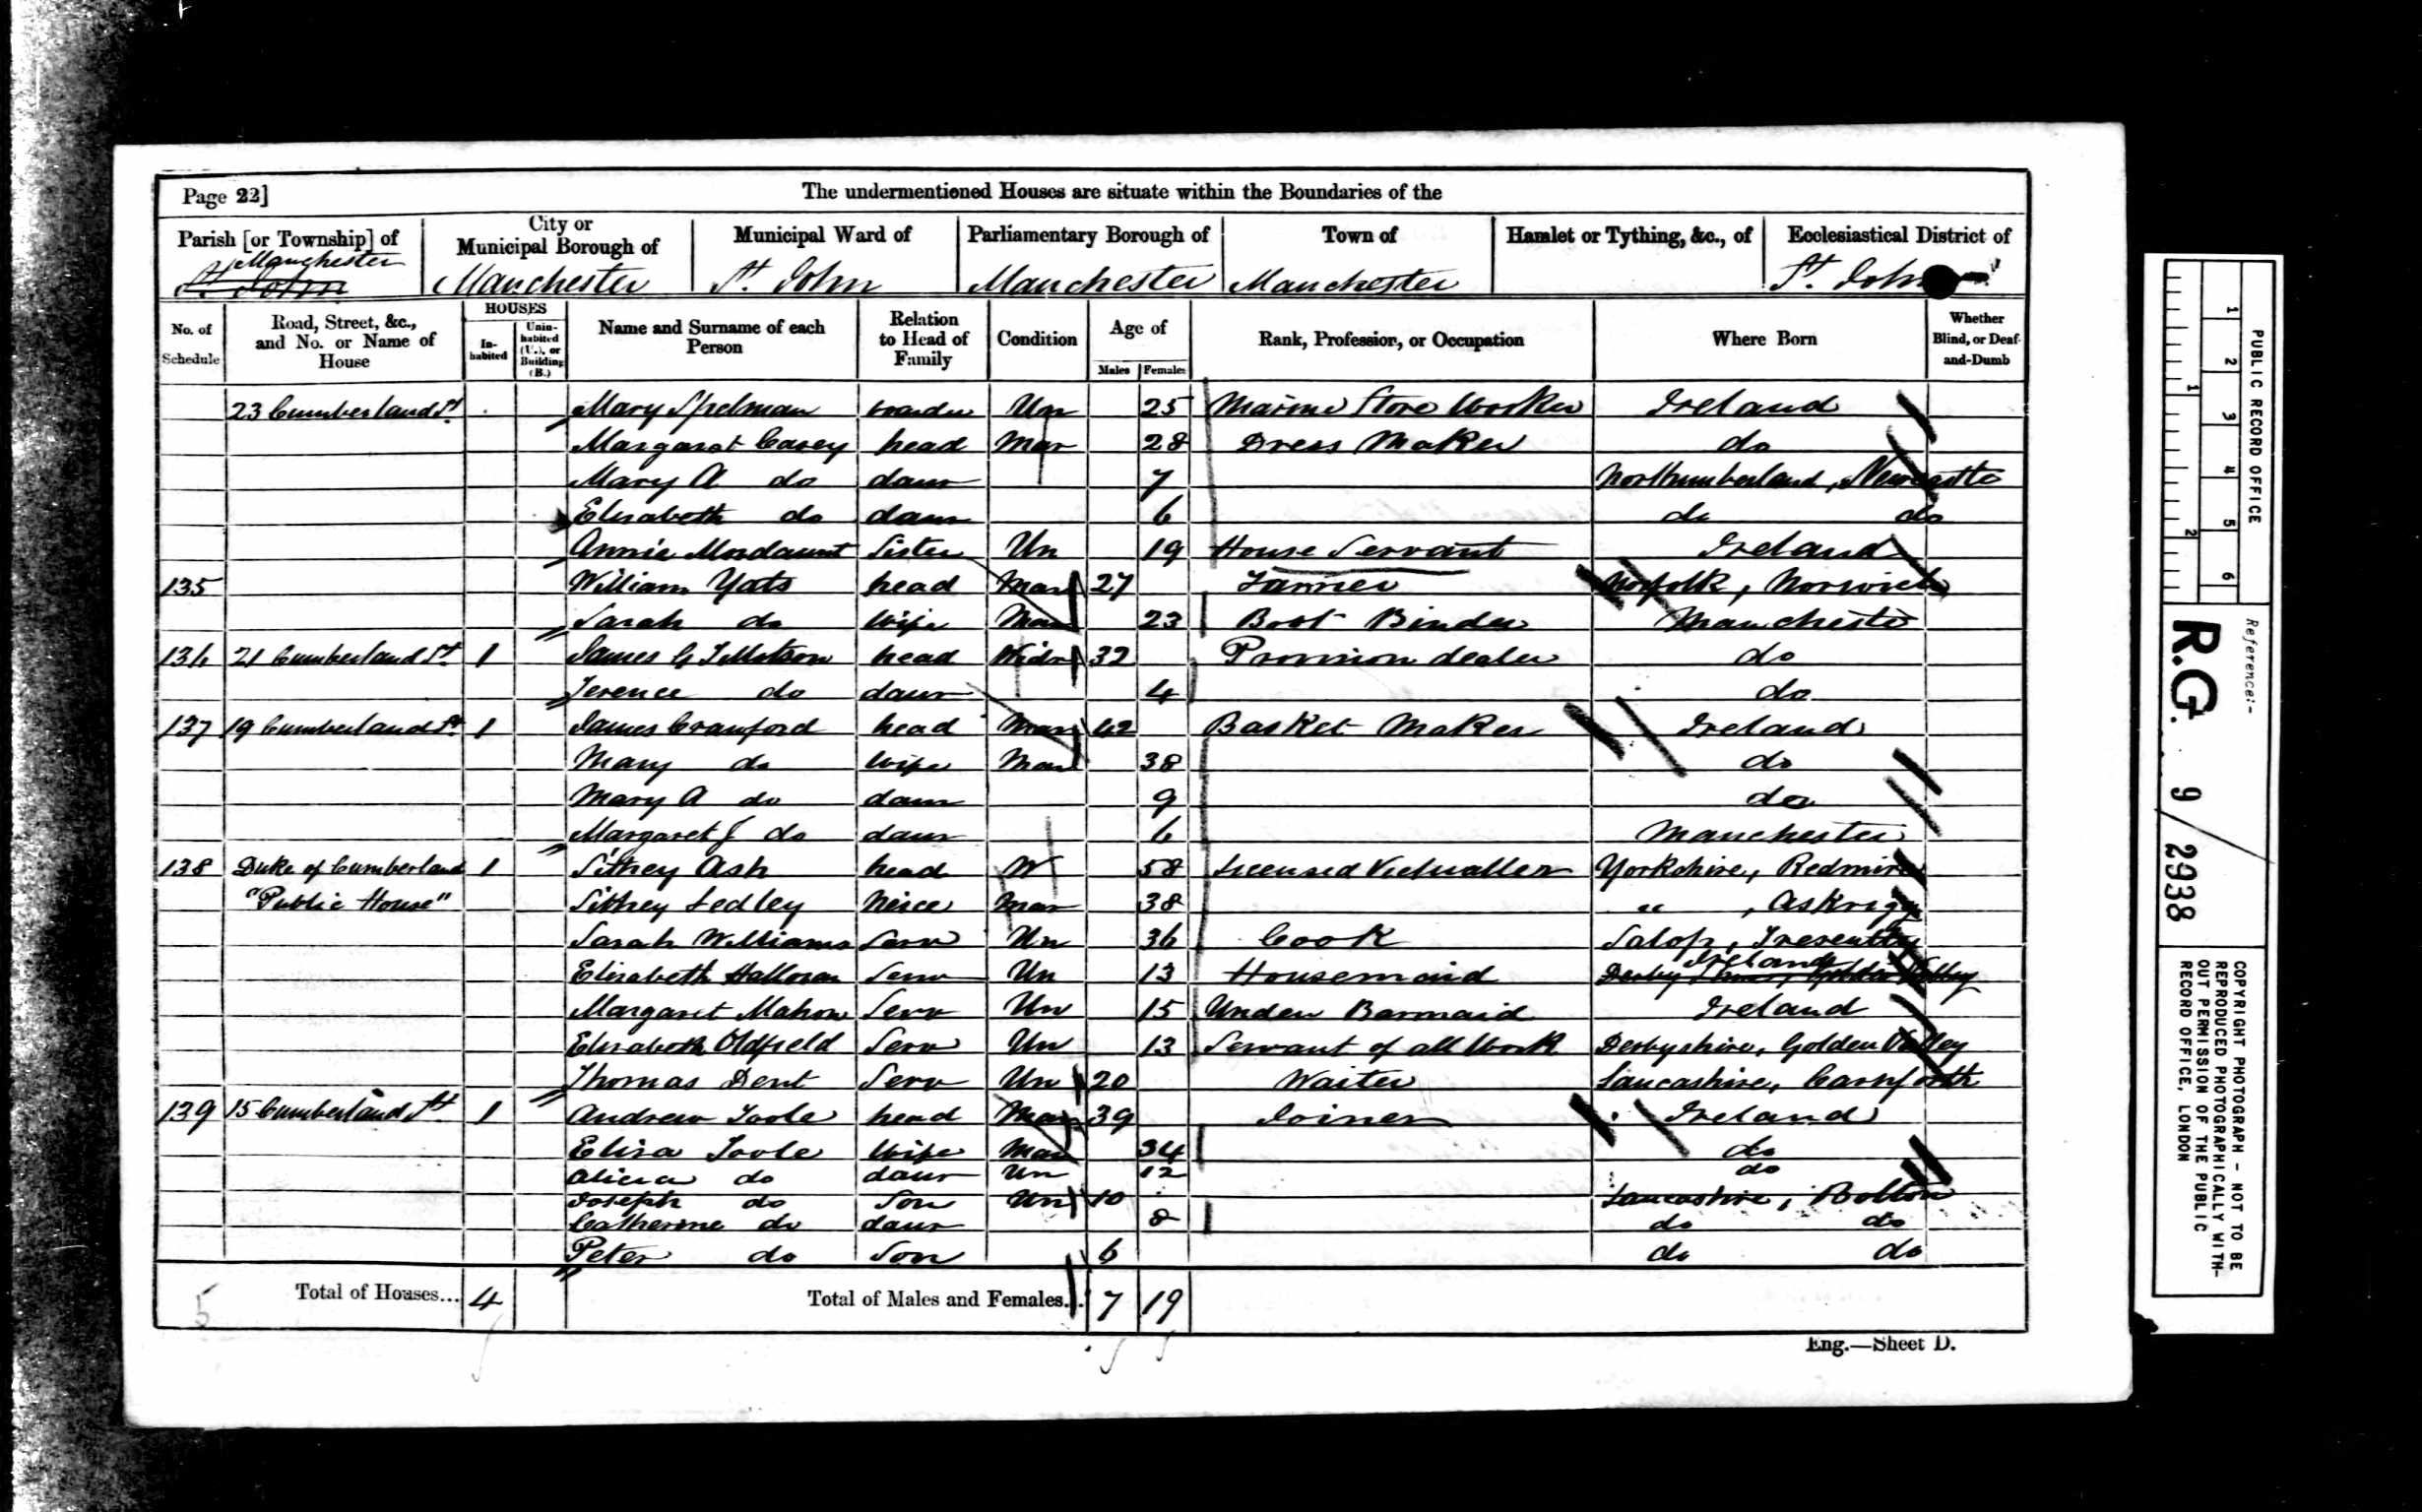 Page 22]
The undermentioned Houses are situate within the Boundaries of the
Parish [or Township] of
City or Municipal Borough of
Municipal Ward of
Parliamentary Borough of
Town of
Hamlet or Tything, &c., of
Ecclesiastical District of
Manchester
St. John
Manchester
St. John
Manchester
Manchester
St. John
No. of Schedule
Road, Street, &c., and No. or Name of House
HOUSES
In-habited
Unin-habited (U.), or Building (B.)
Name and Surname of each Person
Relation to Head of Family
Condition
Age of
Males
Females
Rank, Profession, or Occupation
Where Born
Whether Blind, or Deaf-and-Dumb
23 Cumberland St. Mary Spelman boarder Un 25 Marine Store Worker Ireland
Margaret Casey head Mar 28 Dress Maker do
Mary A do daur 7 Northumberland, Newcastle
Elisabeth do daur 6 do do
Annie Mordaunt Sister Un 19 House Servant Ireland
135 William Yats head Mar 27 Norfolk, Norwich
Sarah do Wife Mar 23 Boot Binder Manchester
136 21 Cumberland St. 1 James G Tillotson head Widr 32 Provision dealer do
Terence do daur 4 do
137 19 Cumberland St. 1 James Cranford head Mar 42 Basket Maker Ireland
Mary do Wife Mar 38 do
Mary A do daur 9 do
Margaret J do daur 6 Manchester
138 Duke of Cumberland 1 Sithey Ash head W 58 Licensed Victualler Yorkshire, Redmire
"Public House" Sithey Sedley Neice Mar 38 " , Askrigg
Sarah Williams Serv Un 36 Cook Salop,
Elisabeth Halloran Serv Un 13 Housemaid Ireland
Margaret Mahon Serv Un 15 Under Barmaid Ireland
Elisabeth Oldfield Serv Un 13 Servant of all Work Derbyshire, Golden Valley
Thomas Dent Serv Un 20 Waiter Lancashire, Carnforth
139 15 Cumberland St. 1 Andrew Toole head Mar 39 Joiner Ireland
Eliza Toole Wife Mar 34 do
Alicia do daur Un 12 do
Joseph do Son Un 10 Lancashire, Bolton
Catherine do daur 8 do do
Peter do Son 6 do do
5 Total of Houses... 4 Total of Males and Females... 7 19
Eng.—Sheet D.
1 2 3 4 5 6
1 2
PUBLIC RECORD OFFICE
Reference:-
R.G. 9/2938
COPYRIGHT PHOTOGRAPH - NOT TO BE
REPRODUCED PHOTOGRAPHICALLY WITH-
OUT PERMISSION OF THE PUBLIC
RECORD OFFICE, LONDON